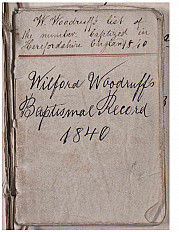 W. Woodruff's list of
the number Baptized in
Herefordshire England 1840
Wilford Woodruff's
Baptismal Record
1840